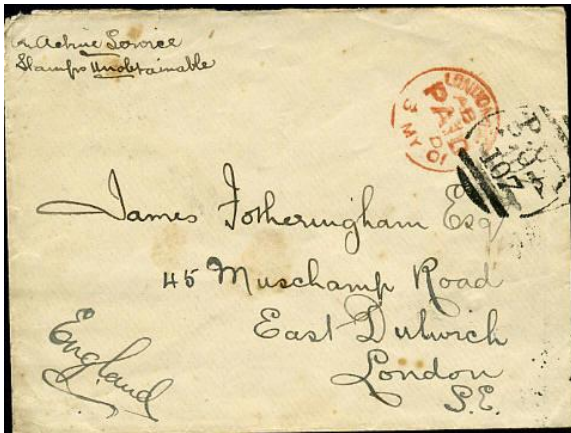 On Active Service
Stamps Unobtainable
LONDON
AB
PAID
3 MY 01
107
James Fotheringham Esq
45 Muschamp Road
East Dulwich
London
S.E.
England